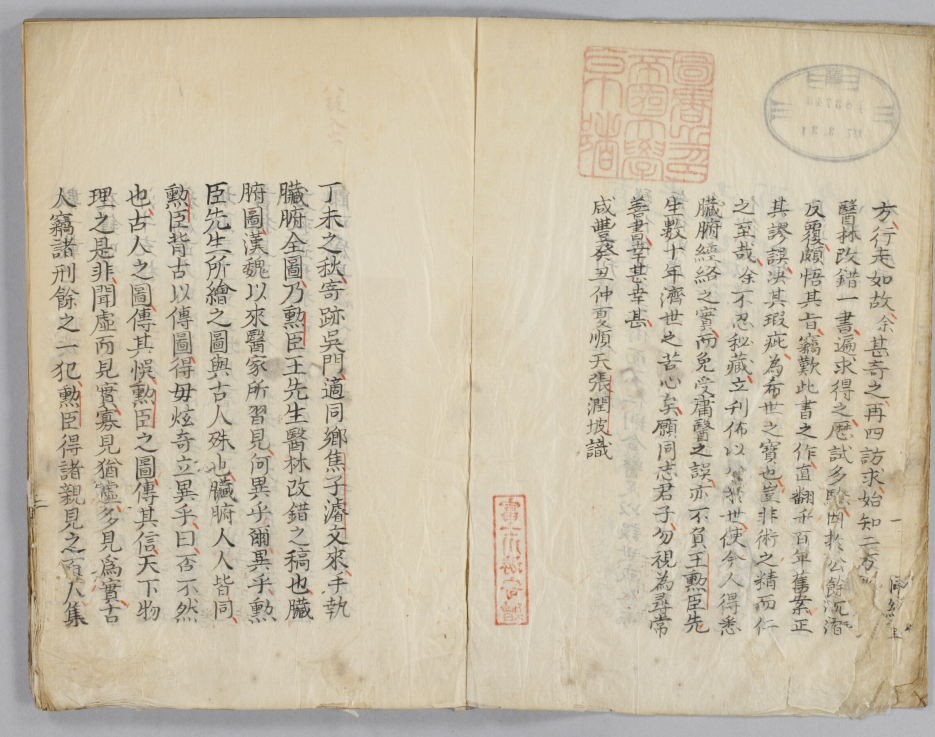 方、行走如故、余甚奇之、再四訪求、始知二方出
醫林改錯一書、遍求得之、歷試多驗、因於公餘沉潛
反覆、頗悟其旨、竊歎此書之作、直翻千百年舊案、正
其謬誤、決其瑕疵、為希世之寶也、豈非術之精而仁
之至哉、余不忍秘藏、立刊佈以濟世、使今人得悉
臟腑經絡之實、而免受庸醫之誤、亦不負王勲臣先
生數十年濟世之苦心矣、願同志君子、勿視為尋常
善書、幸甚幸甚、
咸豐癸丑仲夏順天張潤坡識
丁未之秋、寄跡吳門、適同鄉焦子濬文來、手執
臟腑全圖、乃勲臣王先生醫林改錯之稿也、臟
腑圖、漢魏以來、醫家所習見、何異乎爾、異乎勲
臣先生所繪之圖、與古人殊也、臟腑人人皆同、
勲臣背古以傳圖、得毋炫奇立異乎、曰、否、不然
也、古人之圖、傳其悞、勲臣之圖、傳其信、天下物
理之是非、聞虛而見實、寡見猶虛、多見為實、古
人竊諸刑餘之一犯、勲臣得諸親見之百人、集
圖書之印
帝國大學
京都
富士川游寄贈